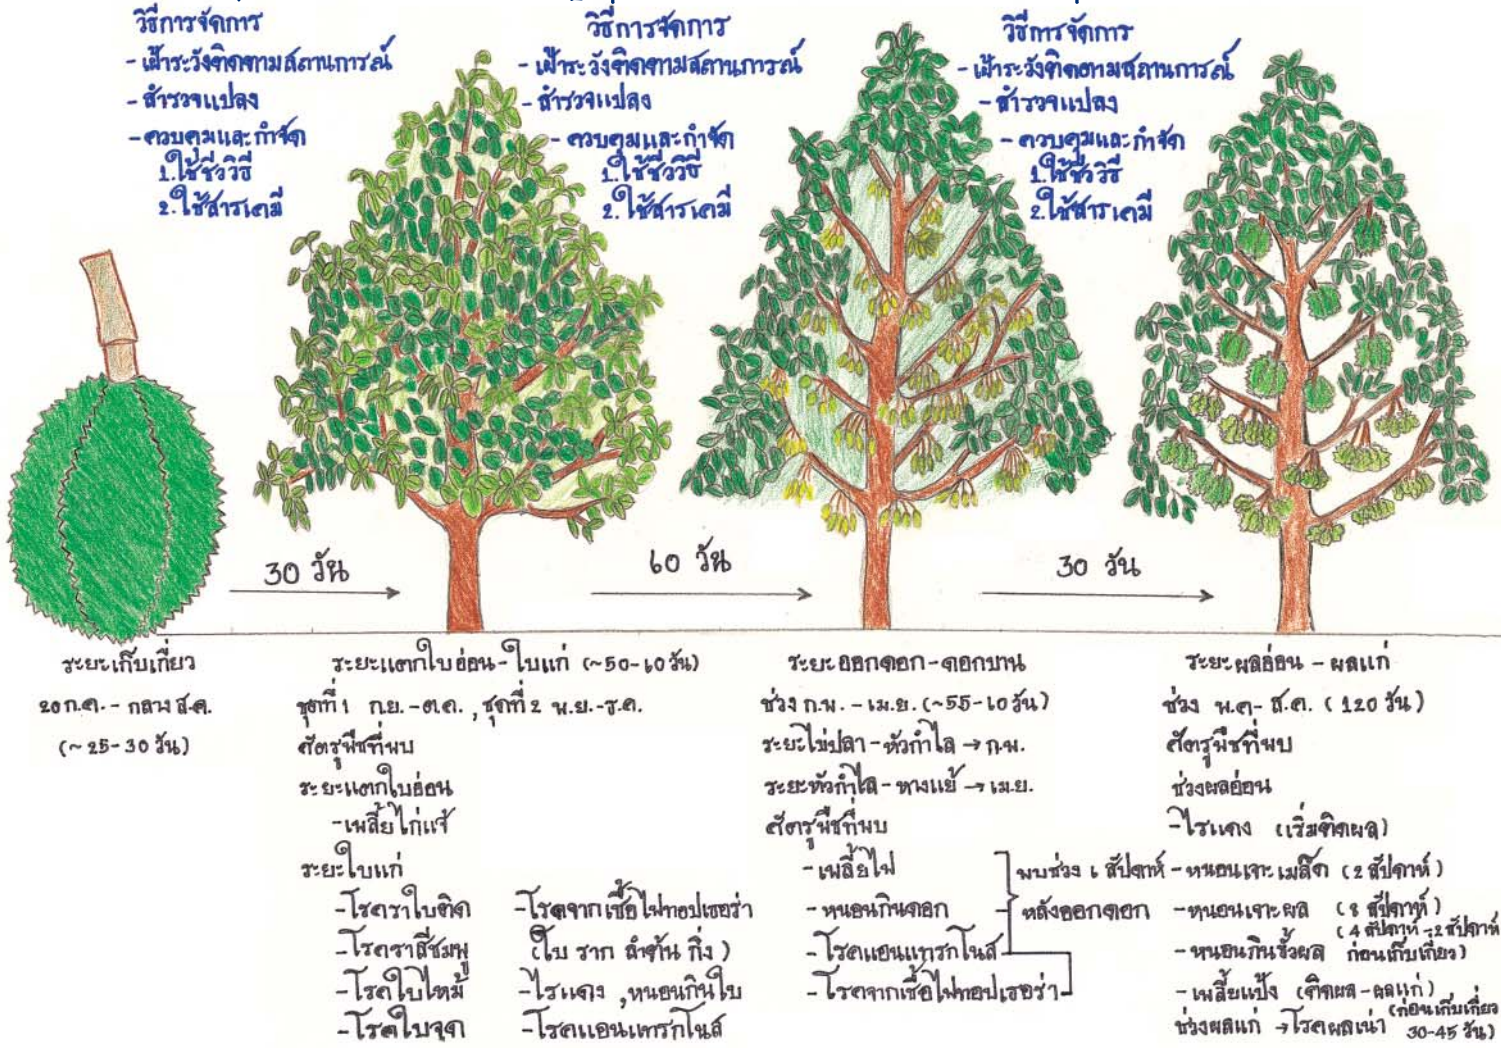 วิธีการจัดการ
- เฝ้าระวังติดตามสถานการณ์
- สำรวจแปลง
- ควบคุมและกำจัด
1. ใช้ชีววิธี
2. ใช้สารเคมี
วิธีการจัดการ
- เฝ้าระวังติดตามสถานการณ์
- สำรวจแปลง
- ควบคุมและกำจัด
1. ใช้ชีววิธี
2. ใช้สารเคมี
วิธีการจัดการ
- เฝ้าระวังติดตามสถานการณ์
- สำรวจแปลง
- ควบคุมและกำจัด
1. ใช้ชีววิธี
2. ใช้สารเคมี
30 วัน
60 วัน
30 วัน
ระยะเก็บเกี่ยว
20 ก.ค. - กลาง ส.ค.
(~ 25-30 วัน)
ระยะแตกใบอ่อน - ใบแก่ (~50-60 วัน)
ชุดที่ 1 ก.ย. - ต.ค. , ชุดที่ 2 พ.ย. - ธ.ค.
ศัตรูพืชที่พบ
ระยะแตกใบอ่อน
- เพลี้ยไก่แจ้
ระยะใบแก่
- โรคราใบติด
- โรคราสีชมพู
- โรคใบไหม้
- โรคใบจุด
- โรคจากเชื้อไฟทอปเธอร่า
(ใบ ราก ลำต้น กิ่ง)
- ไรแดง , หนอนกินใบ
- โรคแอนแทรกโนส
ระยะออกดอก - ดอกบาน
ช่วง ก.พ. - เม.ย. (~55-60 วัน)
ระยะไข่ปลา - หัวกำไล → ก.พ.
ระยะหัวกำไล - หางแย้ → เม.ย.
ศัตรูพืชที่พบ
- เพลี้ยไฟ
- หนอนกินดอก
- โรคแอนแทรกโนส
- โรคจากเชื้อไฟทอปเธอร่า
พบช่วง 6 สัปดาห์
หลังออกดอก
ระยะผลอ่อน - ผลแก่
ช่วง พ.ค - ส.ค. ( 120 วัน )
ศัตรูพืชที่พบ
ช่วงผลอ่อน
- ไรแดง (เริ่มติดผล)
- หนอนเจาะเมล็ด (2 สัปดาห์)
- หนอนเจาะผล (8 สัปดาห์)
- หนอนกินขั้วผล (4 สัปดาห์ - 2 สัปดาห์
ก่อนเก็บเกี่ยว)
- เพลี้ยแป้ง (ติดผล - ผลแก่)
ช่วงผลแก่ → โรคผลเน่า (ก่อนเก็บเกี่ยว
30-45 วัน)